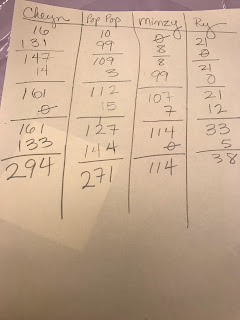 Cheyn Pop Pop minzy Ry
16 10 0 21
131 99 8 0
147 109 8 21
14 3 99 0
161 112 107 21
0 15 7 12
161 127 114 33
133 144 0 5
294 271 114 38